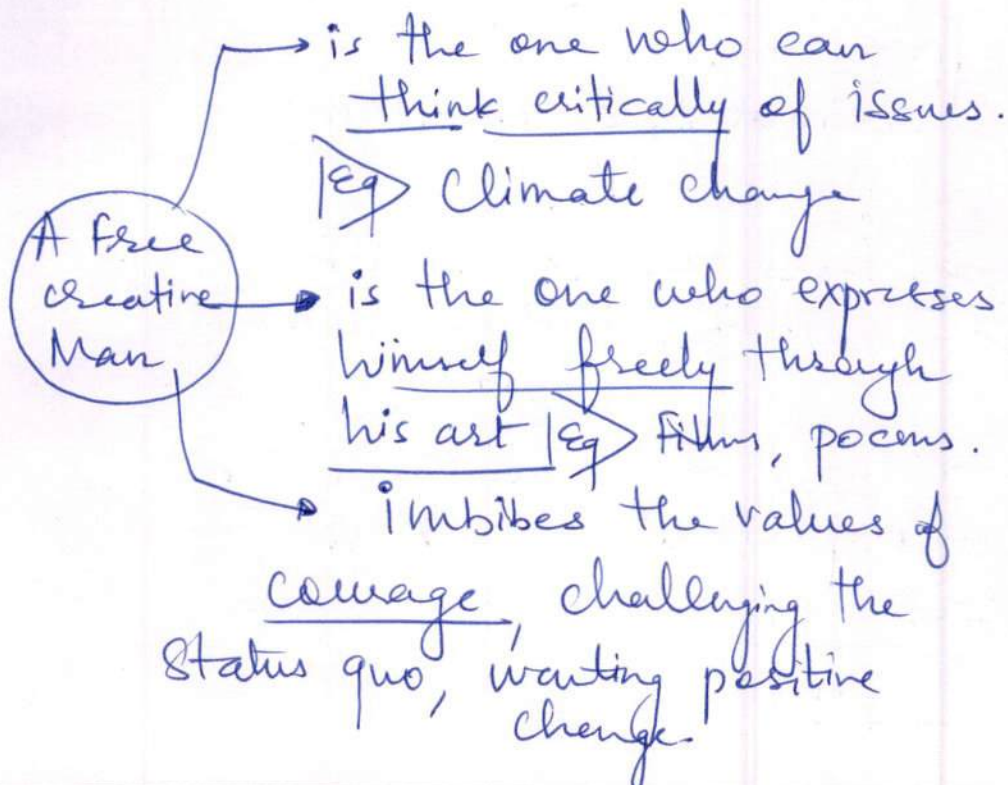 is the one who can
think critically of issues.
Eg Climate change
A free
creative
Man
is the one who expresses
himself freely through
his art Eg Films, poems.
imbibes the values of
courage, challenging the
status quo, wanting positive
change.